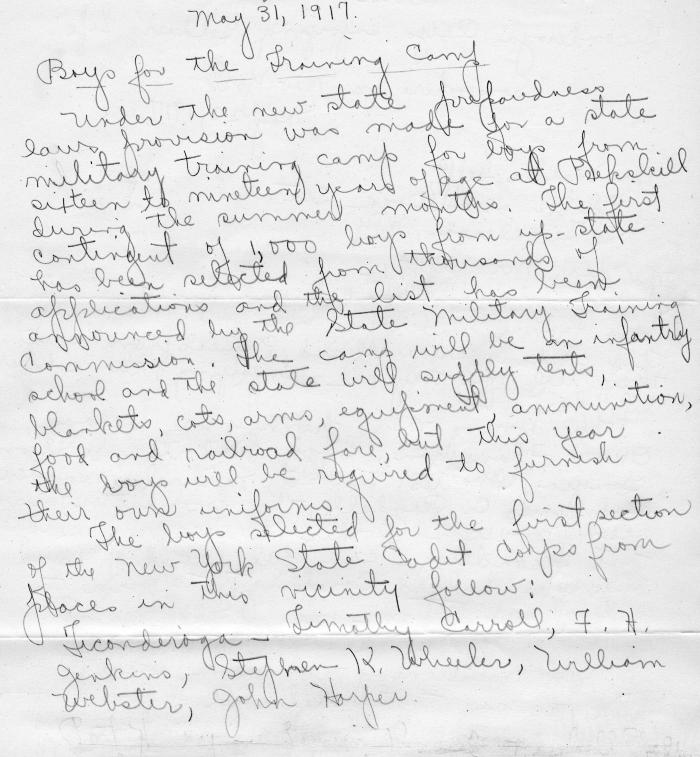 May 31, 1917.
Boys for the Training Camp
Under the new state preparedness
laws provision was made for a state
military training camp for boys from
sixteen to nineteen years of age at Peekskill
during the summer months. The first
contingent of 1,000 boys from up-state
has been selected from thousands of
applications and the list has been
announced by the State Military Training
Commission. The camp will be an infantry
school and the state will supply tents,
blankets, cots, arms, equipment, ammunition,
food and railroad fare, but this year
the boys will be required to furnish
their own uniforms.
The boys selected for the first section
of the New York State Cadet Corps from
places in this vicinity follow:
Ticonderoga - Timothy Carroll, F. H.
Jenkins, Stephen K. Wheeler, William
Webster, John Harper.